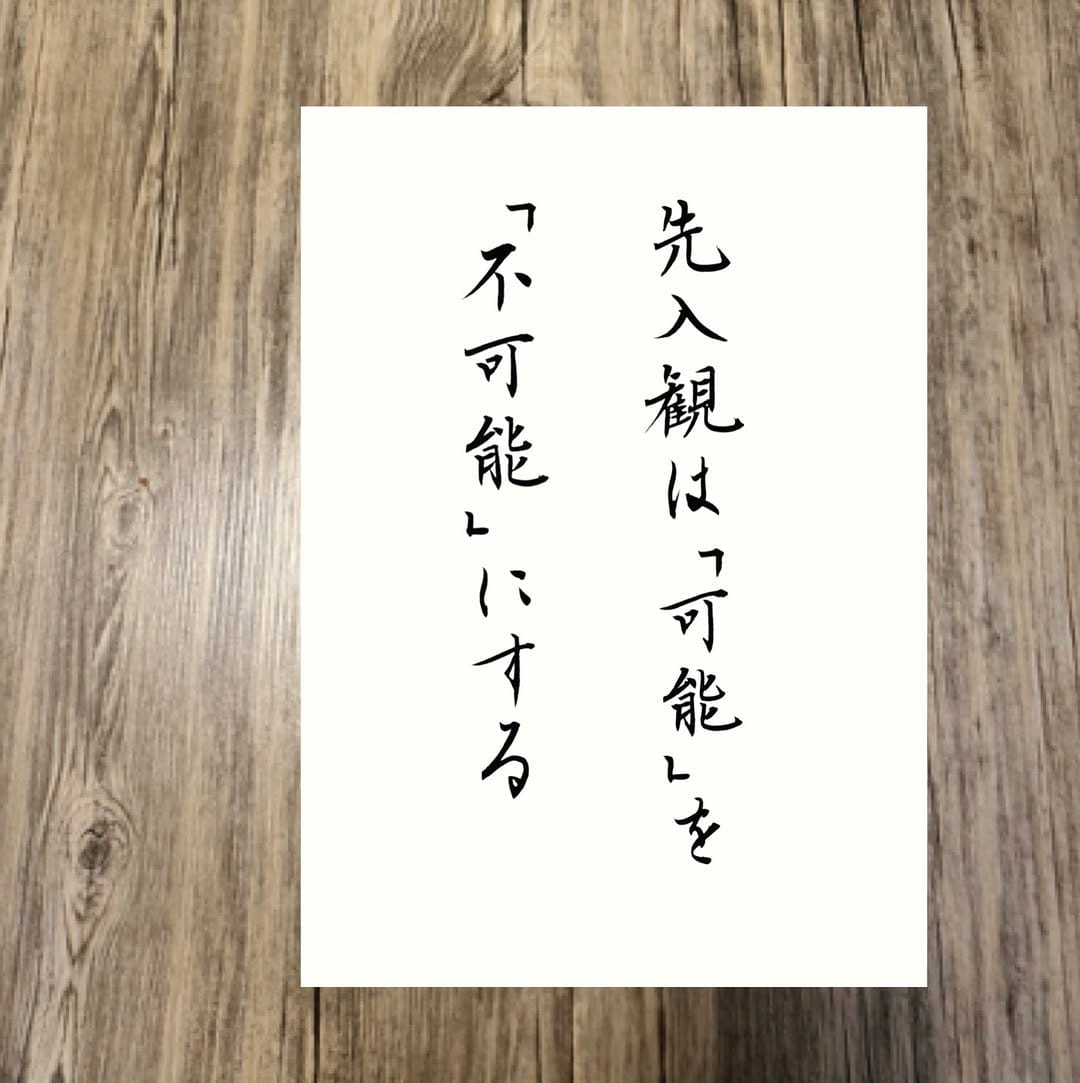 先入観は「可能」を
「不可能」にする